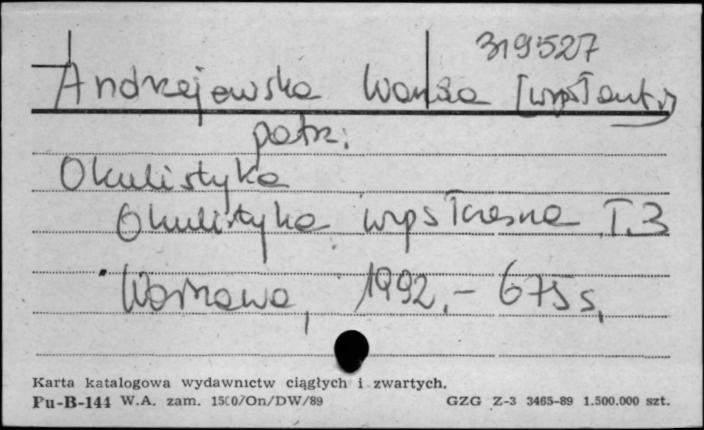 319527
Andrzejewska Wanda [współautor]
patrz:
Okulistyka
Okulistyka współczesna T.3
Warszawa, 1992.- 675 s.
Karta katalogowa wydawnictw ciągłych i zwartych.
Pu-B-144 W.A. zam. 1500/On/DW/89 GZG Z-3 3465-89 1.500.000 szt.